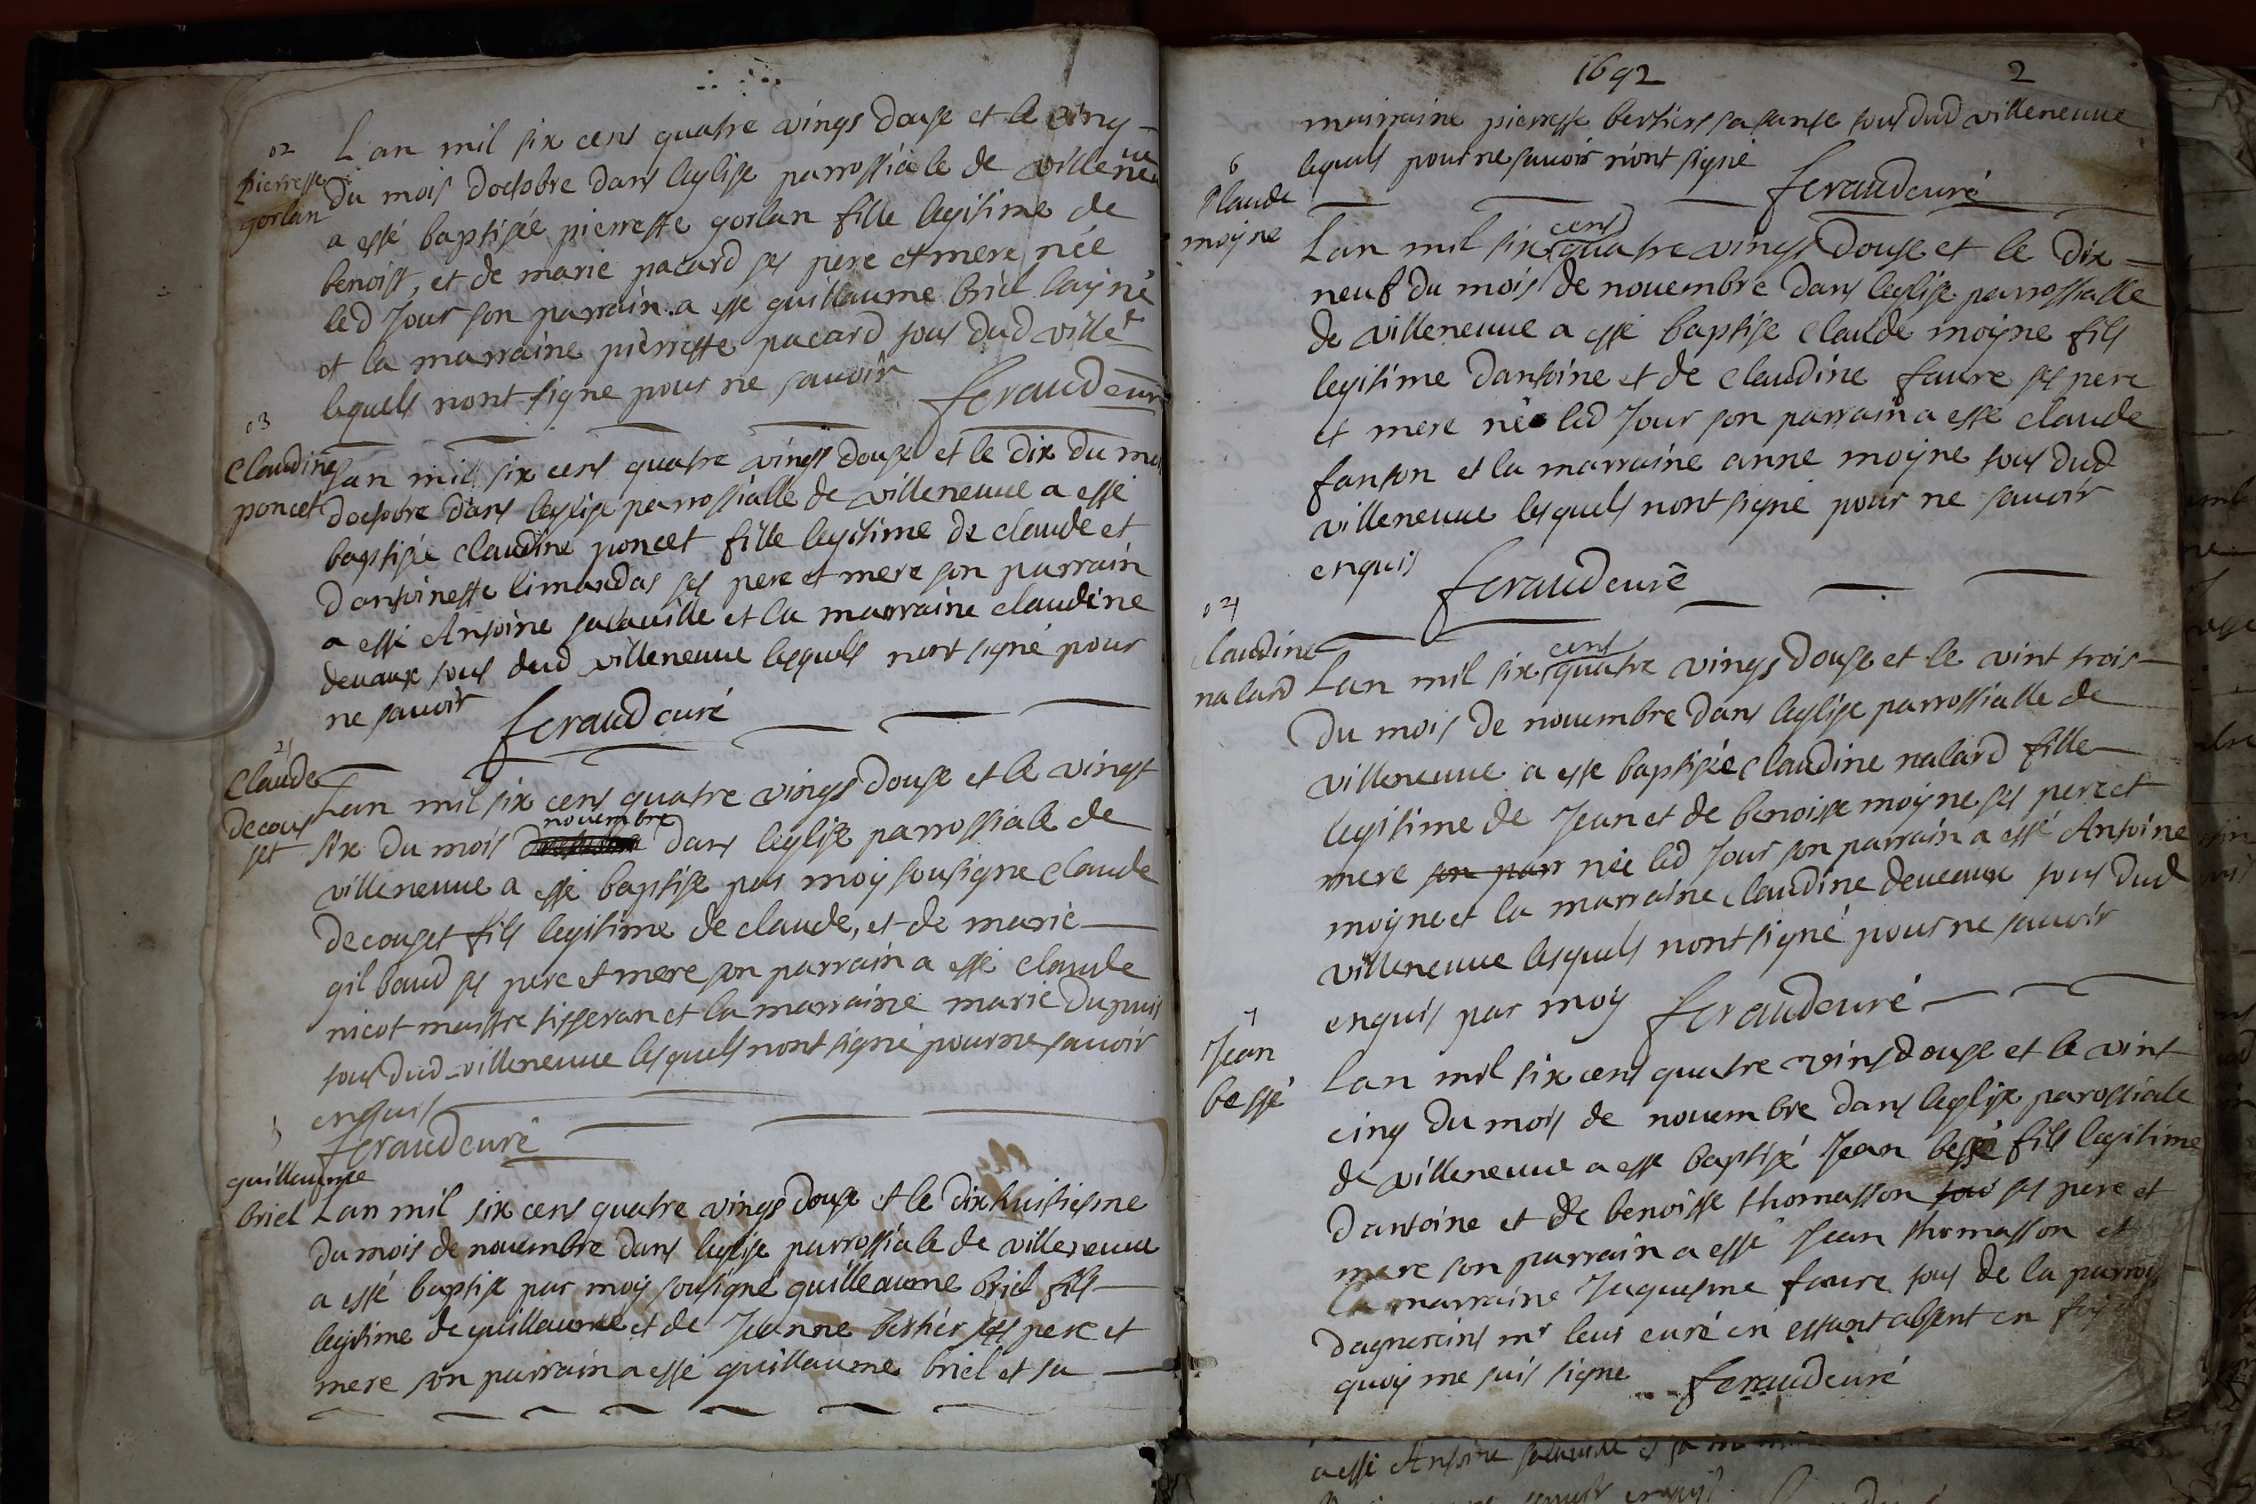 02
pierreste
gorlan
L'an mil six cens quatre vings douse et le cinq
du mois doctobre dans leglise parrossiale de villeneuve
a esté baptisée pierreste gorlan fille legitime de
benoist, et de marie pacard ses pere et mere née
led Jour son parrain a esté guillaume briel layné
et la marraine pierrette pacard tous dud ville.e
lequels nont signe pour ne savoir
feraud curé
03
Claudine
poncet
Lan mil six cens quatre vings douse et le dix du mois
doctobre dans leglise parrossialle de villeneuve a esté
baptisée claudine poncet fille legitime de claude et
dantoinette limandas ses pere et mere son parrain
a esté Antoine salaville et la marraine claudine
devaux tous dud villeneuve lesquels nont signé pour
ne savoir
feraud curé
Claude
decous
set
Lan mil six cens quatre vings douse et le vingt
six du mois novembre dans leglise parrossiale de
villeneuve a esté baptise par moy sousigne Claude
decouset fils legitime de claude, et de marie
gilbaud ses pere et mere son parrain a esté claude
nicot maistre tisseran et la marraine marie dupuis
tous dud villeneuve lesquels nont signé pour ne savoir
enquis
feraud curé
guillaume
briel
Lan mil six cens quatre vings douse et le dixhuitiesme
du mois de novembre dans leglise parrossiale de villeneuve
a esté baptise par moy sousigné guilleaume briel fils
legitime de guillaume et de Jeanne bertier ses pere et
mere son parrain a esté guillaume briel et sa
1692
2
marraine pierreste bertiers sa tante tous dud villeneuve
lequels pour ne savoir n'ont signé
feraud curé
6
Claude
moyne
Lan mil six cens quatre vings douse et le dix
neuf du mois de novembre dans leglise parrossialle
de villeneuve a esté baptise Claude moyne fils
legitime dantoine et de claudine faure ses pere
et mere né led Jour son parrain a esté claude
fanton et la marraine anne moyne tous dud
villeneuve lesquels nont signé pour ne savoir
enquis
feraud curé
Claudine
nalard
Lan mil six cens quatre vings douse et le vint trois
du mois de novembre dans leglise parrossialle de
villeneuve a esté baptisée Claudine nalard fille
legitime de Jean et de benoiste moyne ses pere et
mere son parr née led Jour son parrain a esté Antoine
moyne et la marraine Claudine deveaux tous dud
villeneuve lesquels nont signé pour ne savoir
enquis par moy feraud curé
7
Jean
bessé
Lan mil six cens quatre vins douse et le vint
cinq du mois de novembre dans leglise parossiale
de villeneuve a esté baptisé Jean bessé fils legitime
dantoine et de benoiste thomasson ses pere et
mere son parrain a esté Jean thomasson et
la marraine Jaquesme faure tous de la parrois
dagnereins mr leur curé en estant absent en foy de
quoy me suis signe feraud curé
a esté Antoine